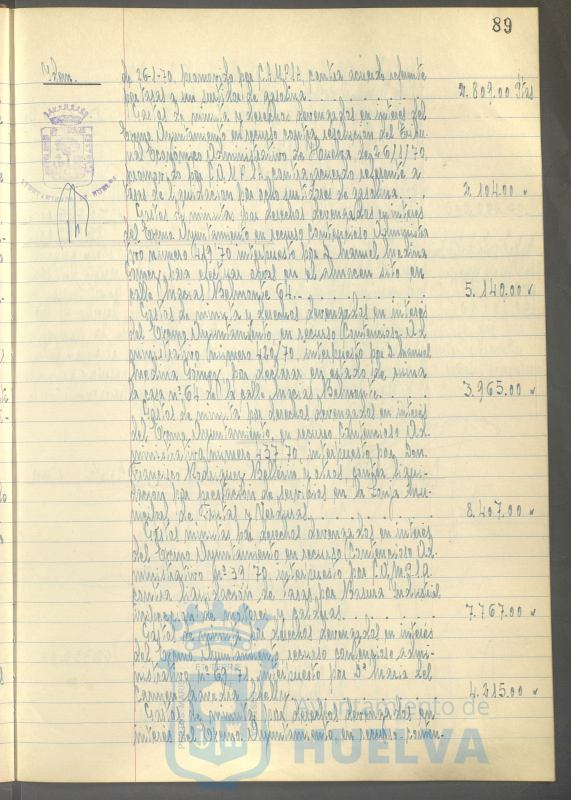 89
Idem.
de 26-1-70, promovido por C.A.M.P.S.A, contra acuerdo referente
por tasas a un surtidor de gasolina. 2.809.00 Ptas
Gastos de minuta y derechos devengados en interés del
Excmo Ayuntamiento en recurso contra resolución del Tribu-
nal Económico Administrativo de Huelva de 26/1/70,
promovido por C.A.M.P.S.A, contra acuerdo referente a
tasas de liquidación por ocho surtidores de gasolina. 2.104.00 "
Gastos de minuta por derechos devengados en interés
del Excmo Ayuntamiento en recurso Contencioso Administra
tivo número 419/70 interpuesto por D. Manuel Medina
Gómez, para efectuar obras en el almacen sito en
calle Ingenial Belmonte 64. 5.140.00 "
Gastos de minuta y derechos devengados en interés
del Excmo Ayuntamiento, en recurso Contencioso Ad-
ministrativo número 420/70, interpuesto por D. Manuel
Medina Gómez, por declarar en estado de ruina
la casa nº 64 de la calle Belmonte. 3.965.00 "
Gastos de minuta por derechos devengados en interés
del Excmo Ayuntamiento, en recurso Contencioso Ad-
ministrativo número 437/70, interpuesto por Don
Francisco Rodriguez y otros, contra liqui-
dación por prestación de servicios en la Lonja Mu-
nicipal de Frutas y Verduras. 8.407.00 "
Gastos minutas por derechos devengados en interés
del Excmo Ayuntamiento en recurso Contencioso Ad-
ministrativo nº 39/70, interpuesto por C.A.M.P.S.A.
contra liquidación de tasas, por Basura Industrial
inspección de motores y calderas. 7.767.00 "
Gastos de minuta por derechos devengados en interés
del Excmo Ayuntamiento, recurso contencioso admi-
nistrativo nº 69/71, interpuesto por Dª Maria del
Carmen 4.215.00 "
Gastos de minuta por derechos devengados en
interés del Excmo Ayuntamiento, en recurso conten-
Ayuntamiento de
HUELVA